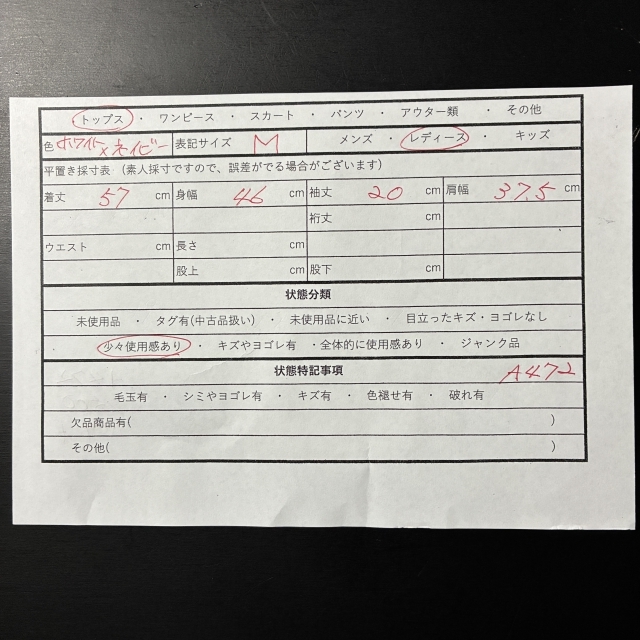 トップス ・ ワンピース ・ スカート ・ パンツ ・ アウター類 ・ その他
色 ホワイト×ネイビー 表記サイズ M メンズ ・ レディース ・ キッズ
平置き採寸表 (素人採寸ですので、誤差がでる場合がございます)
着丈 57 cm 身幅 46 cm 袖丈 20 cm 肩幅 37.5 cm
裄丈 cm
ウエスト cm 長さ cm
股上 cm 股下 cm
状態分類
未使用品 ・ タグ有(中古品扱い) ・ 未使用品に近い ・ 目立ったキズ・ヨゴレなし
少々使用感あり ・ キズやヨゴレ有 ・全体的に使用感あり ・ ジャンク品
状態特記事項 A472
毛玉有 ・ シミやヨゴレ有 ・ キズ有 ・ 色褪せ有 ・ 破れ有
欠品商品有( )
その他( )